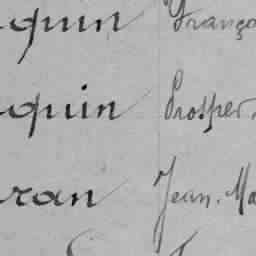 quin Franço
quin Prosper
ran Jean. Ma